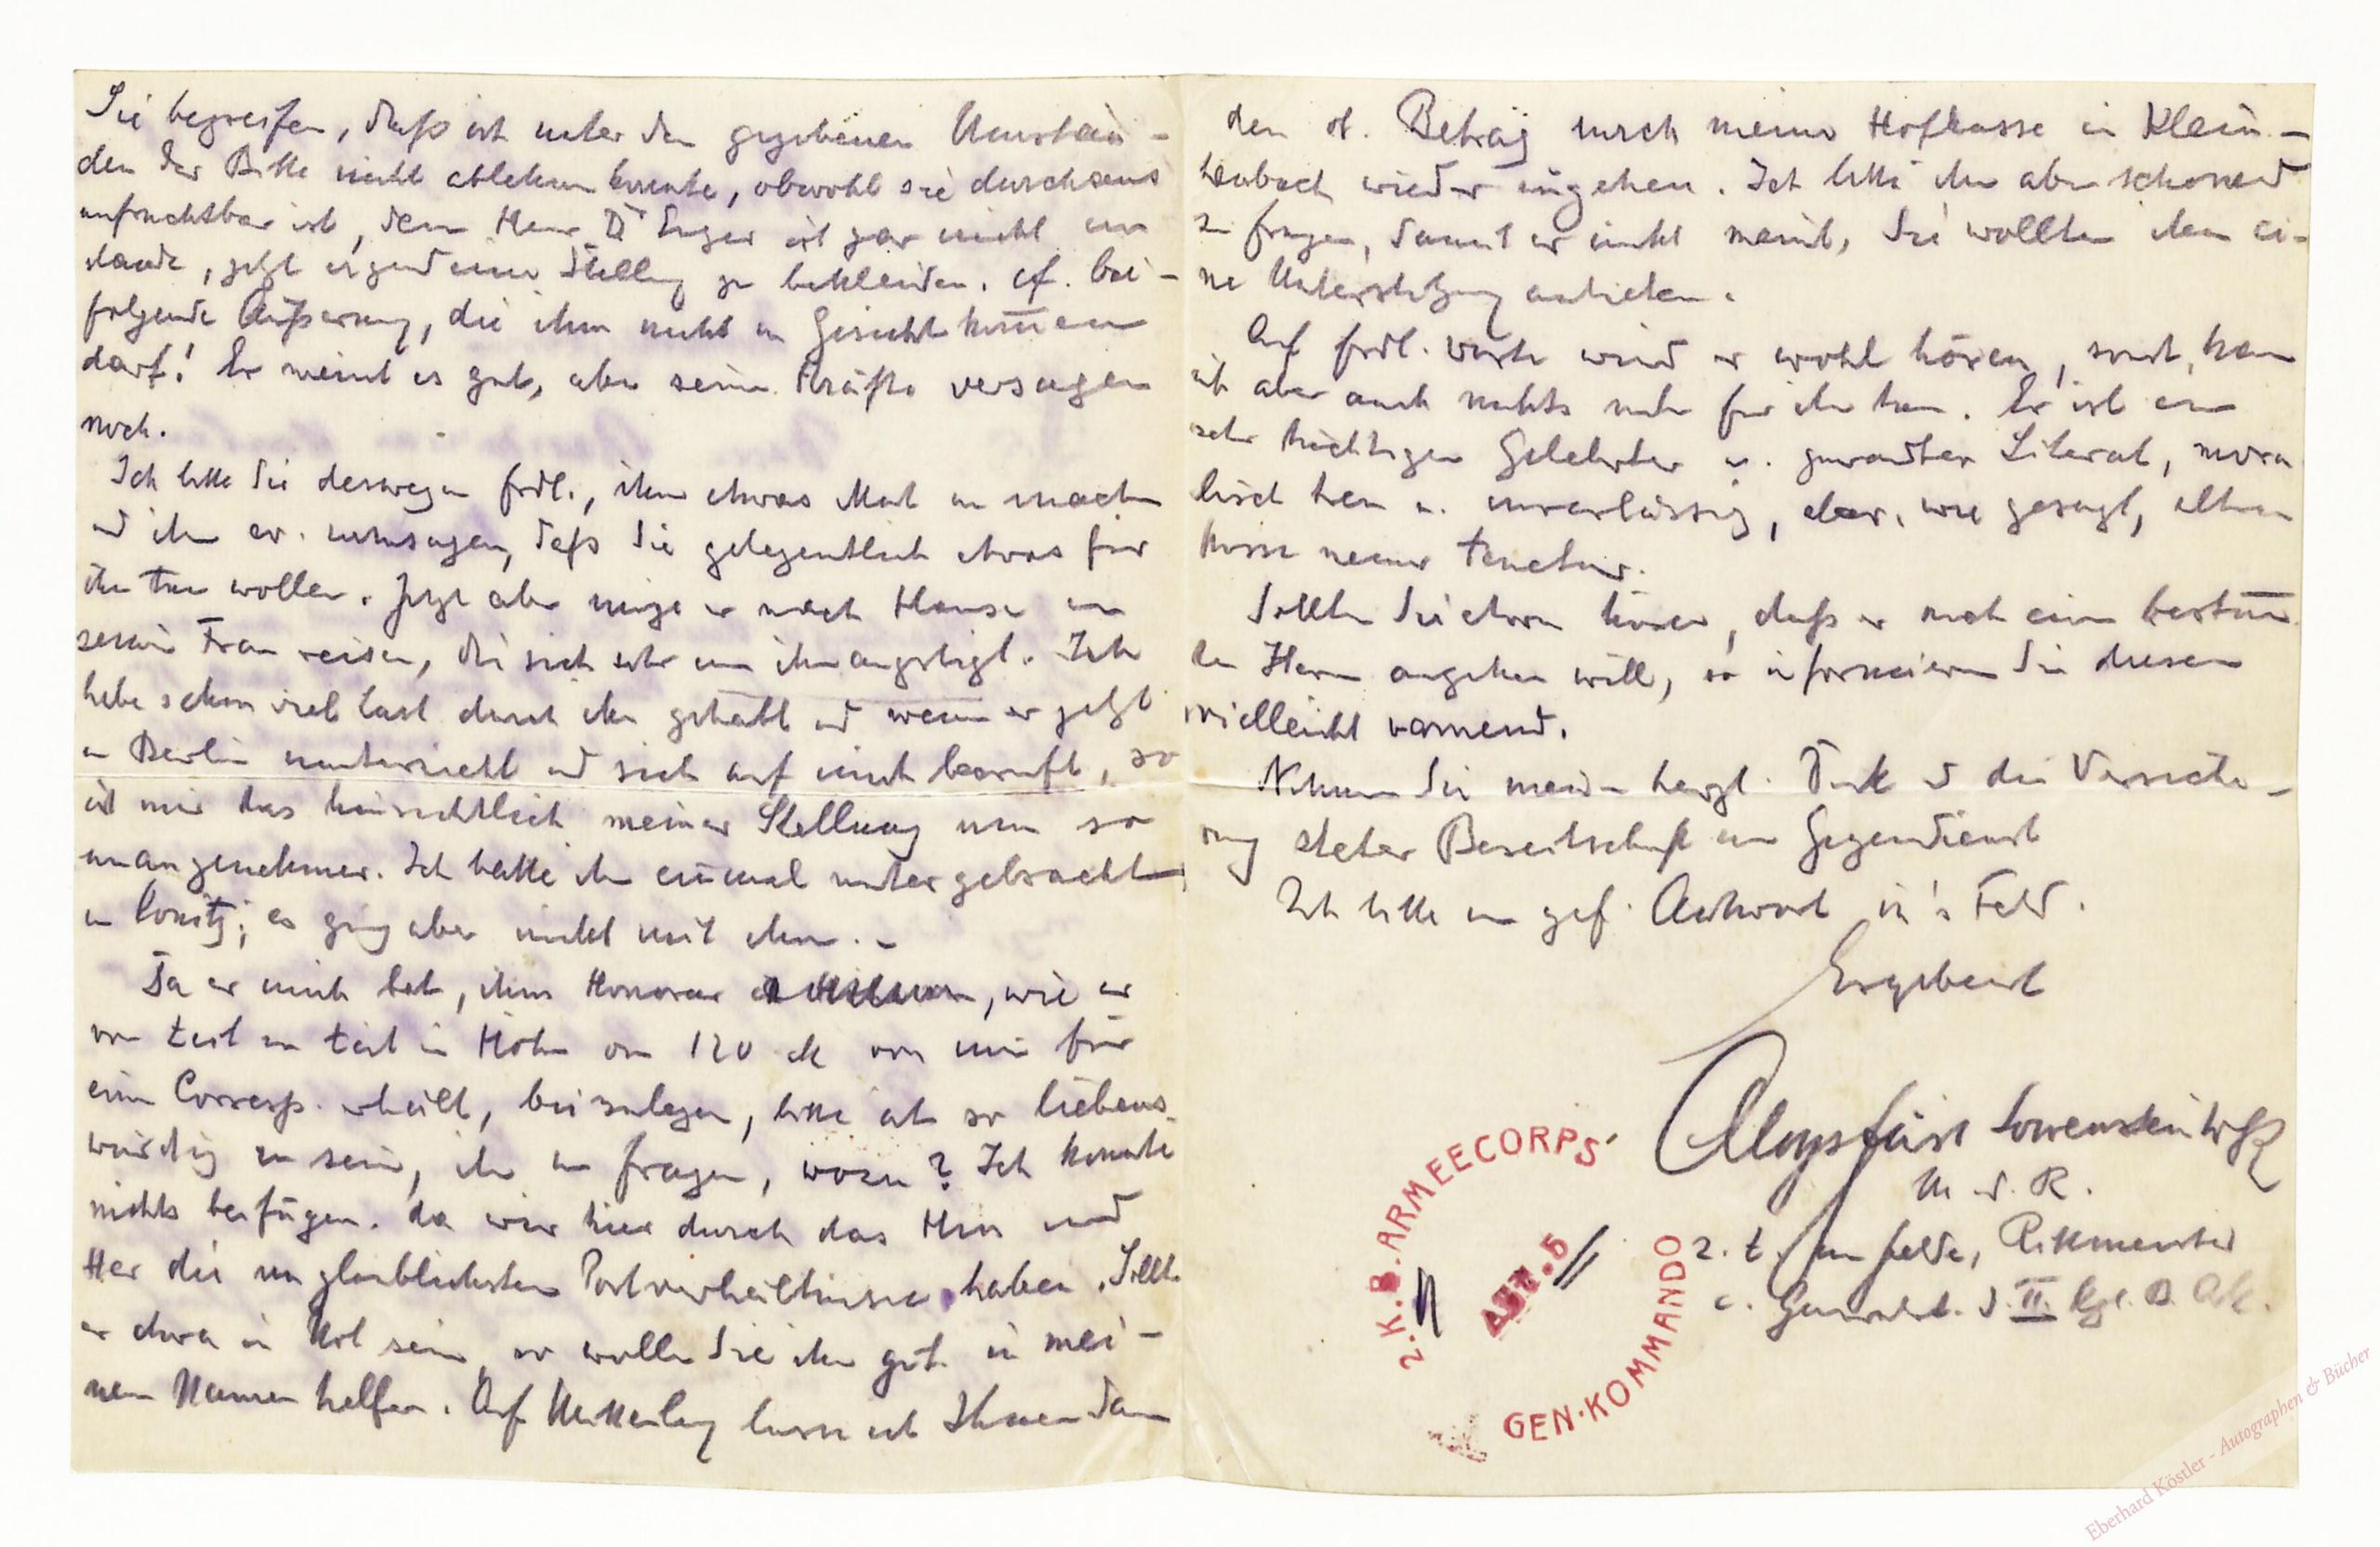 Sie begreifen, daß ich unter den gegebenen Umstän-
den der Bitte nicht ablehnen konnte, obwohl sie durchaus
unfruchtbar ist, denn Herr Dr ist gar nicht im
stande, jetzt irgend eine Stellung zu bekleiden. cf. bei-
folgende Äußerung, die ihm nicht zu Gesicht kommen
darf! Er meint es gut, aber seine Kräfte versagen
noch.
Ich bitte Sie deswegen frdl., ihm etwas Mut zu machen
und ihm ev. zuzusagen, daß Sie gelegentlich etwas für
ihn tun wollen. Jetzt aber möge er nach Hause zu
seiner Frau reisen, die sich sehr um ihn ängstigt. Ich
habe schon viel Last durch ihn gehabt und wenn er jetzt
in Berlin und sich auf mich beruft, so
ist mir das hinsichtlich meiner Stellung um so
unangenehmer. Ich hatte ihn einmal untergebracht
in Conitz; es ging aber nicht mit ihm. –
Da er mich bat, ihm Honorar , wie er
von Zeit zu Zeit in Höhe von 120 M von mir für
eine Corresp. erhält, beizulegen, bitte ich so liebens-
würdig zu sein, ihn zu fragen, wozu? Ich konnte
nichts beifügen, da wir hier durch das Hin und
Her die unglaublichsten Postverhältnisse haben. Sollte
er etwa in Not sein, so wollen Sie ihm güt. in mei-
nem Namen helfen. Auf Mitteilung lasse ich Ihnen dann
den Betrag durch meine Hofkasse in Klein-
heubach wieder zugehen. Ich bitte ihn aber schonend
zu fragen, damit er nicht meint, Sie wollten ihm ei-
ne Unterstützung anbieten.
Auf frdl. Worte wird er wohl hören, sonst kann
ich aber auch nichts mehr für ihn tun. Er ist ein
sehr tüchtiger Gelehrter u. gewandter Literat, mora-
lisch treu u. zuverlässig, aber, wie gesagt,
Sollten Sie etwa hören, daß er noch einen bestimm-
ten Herrn angehen will, so informieren Sie diesen
vielleicht warnend.
Nehmen Sie meinen herzl. Dank u die Versiche-
rung steter Bereitschaft zum Gegendienst
Ich bitte um gef. Antwort in's Feld.
Ergebenst
Aloys Fürst Löwenstein
M. d. R.
z. Z. im Felde, Rittmeister
b. Generalkd. d. II. kgl. B. AK.
2. K. B. ARMEECORPS.
ABT. 5
GEN-KOMMANDO
Eberhard Köstler - Autographen & Bücher